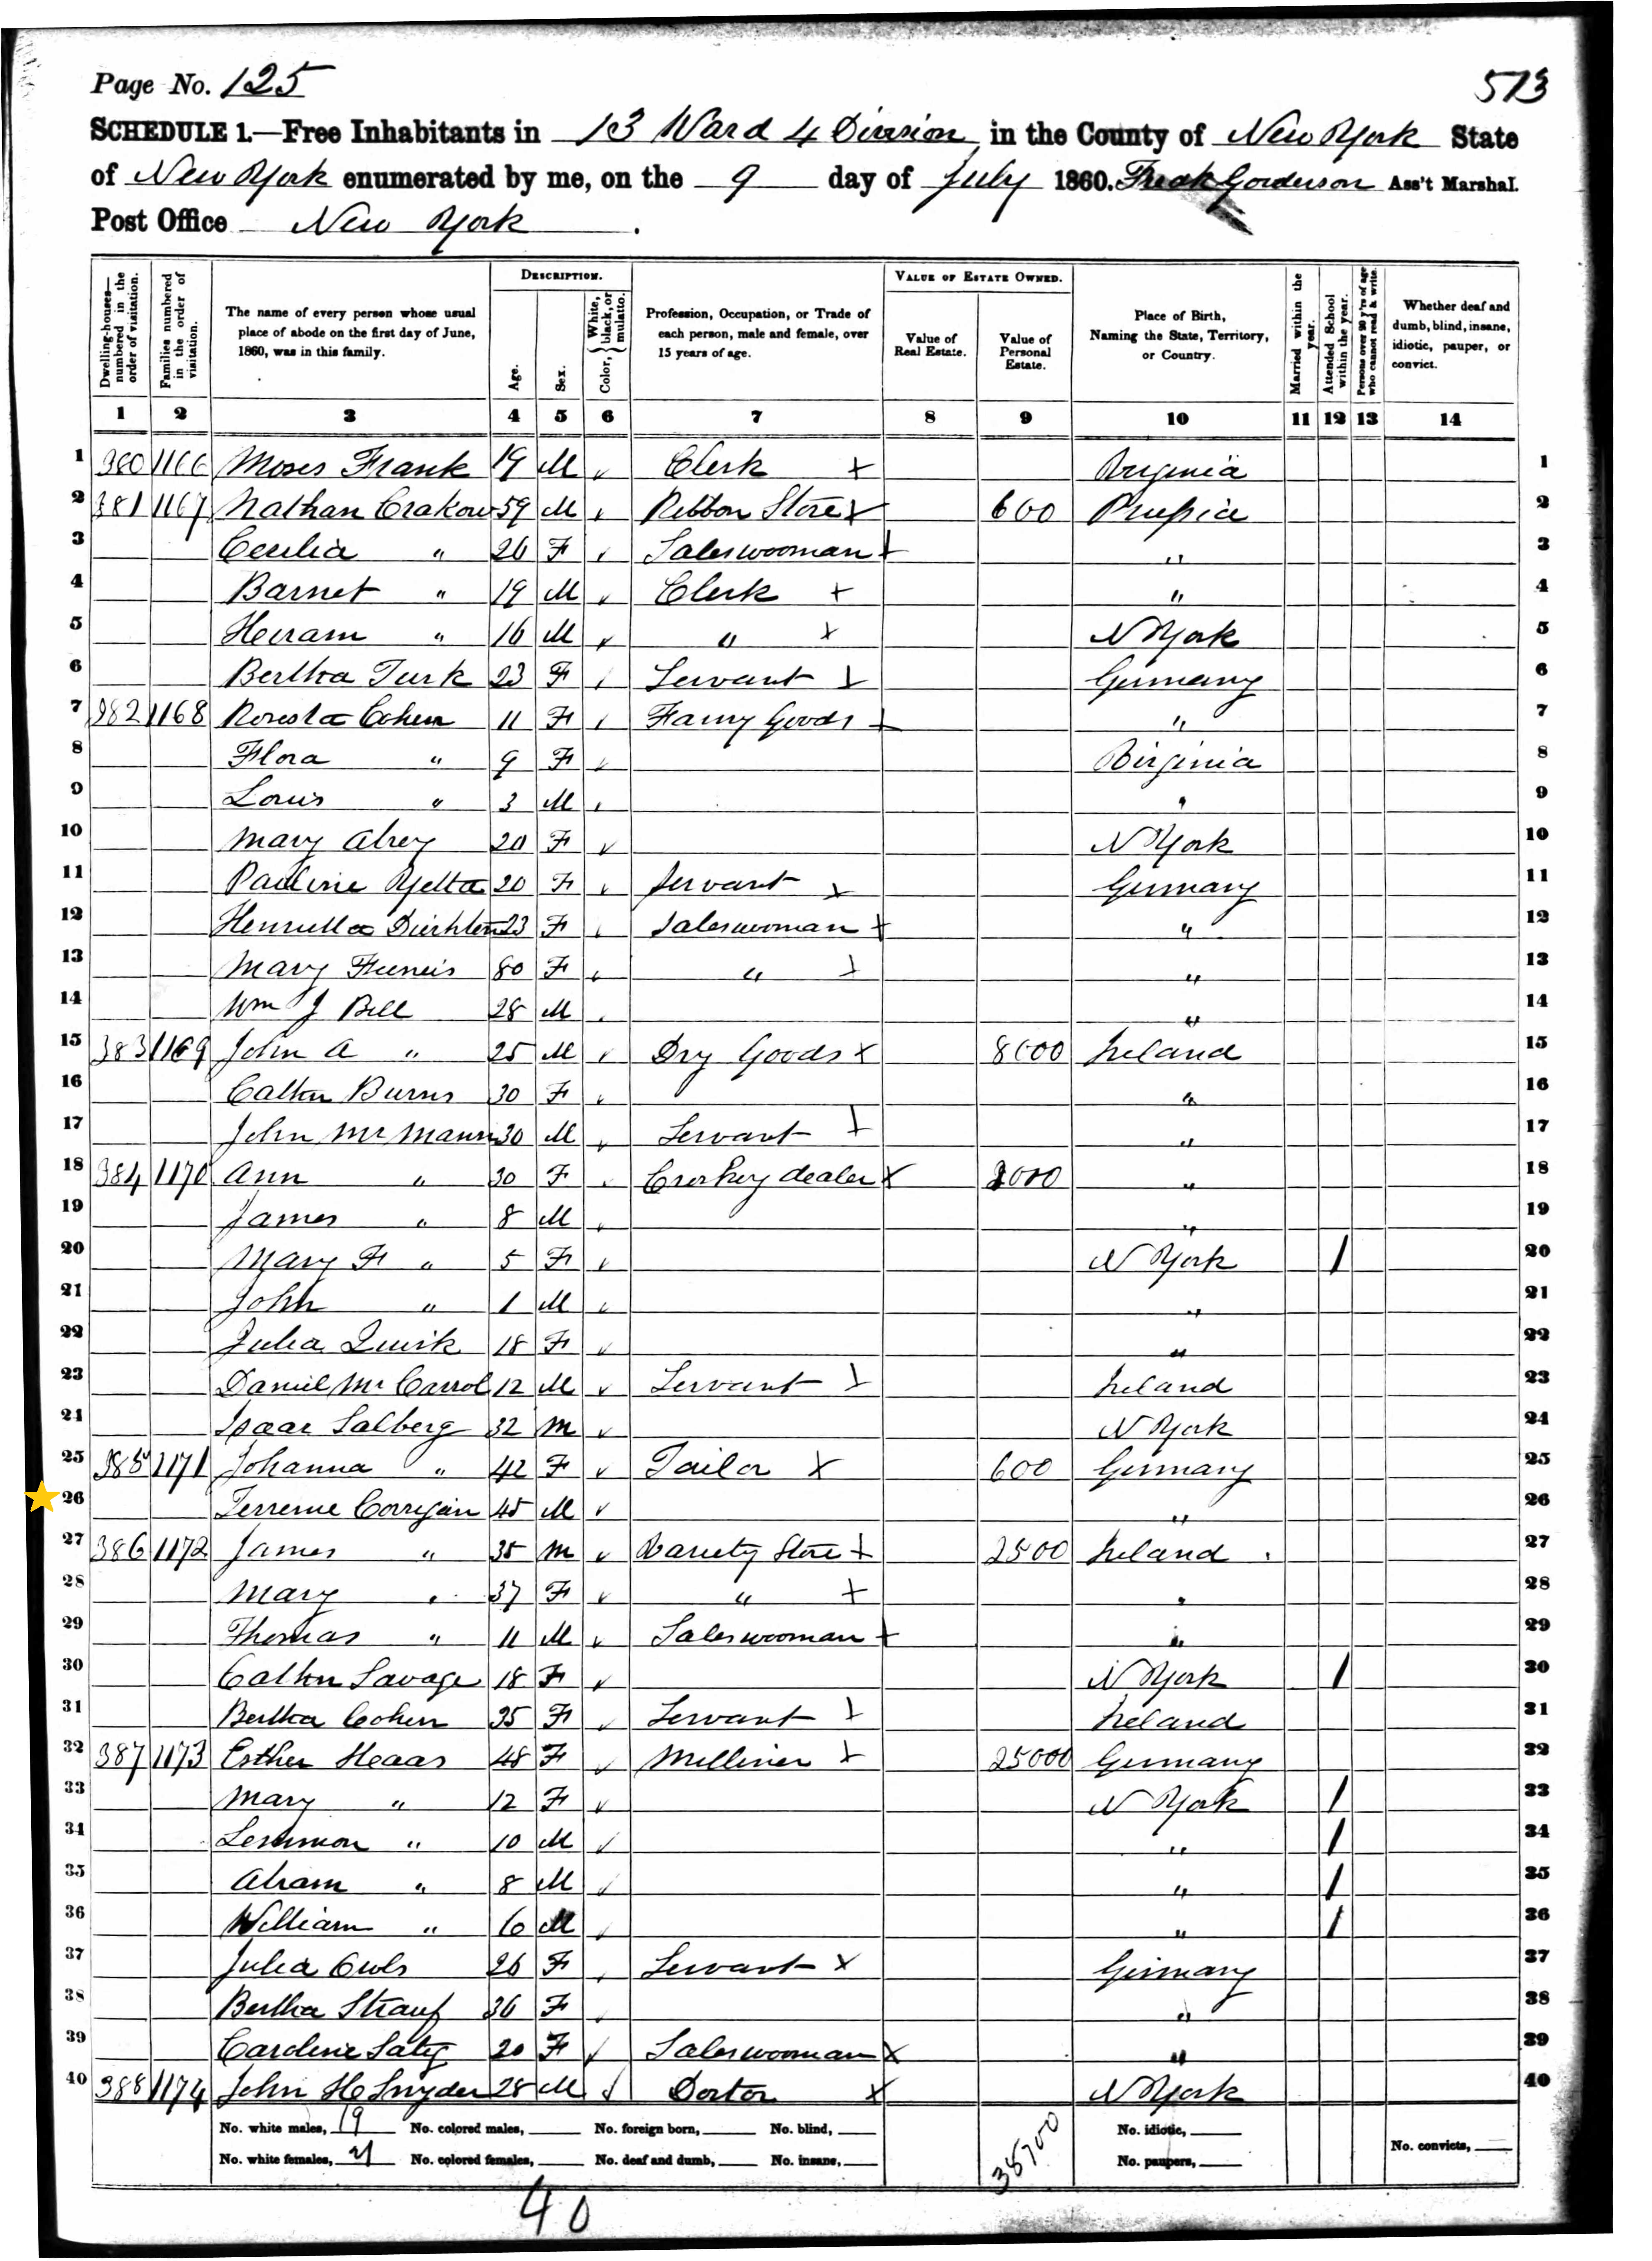 Page No. 125
573
SCHEDULE 1.—Free Inhabitants in 13 Ward 4 Division in the County of New York State
of New York enumerated by me, on the 9 day of July 1860. Ass't Marshal.
Post Office New York .
Dwelling-houses—numbered in the order of visitation.
Families numbered in the order of visitation.
The name of every person whose usual place of abode on the first day of June, 1860, was in this family.
DESCRIPTION.
Age.
Sex.
Color, White, black, or mulatto.
Profession, Occupation, or Trade of each person, male and female, over 15 years of age.
VALUE OF ESTATE OWNED.
Value of Real Estate.
Value of Personal Estate.
Place of Birth, Naming the State, Territory, or Country.
Married within the year.
Attended School within the year.
Persons over 20 y'rs of age who cannot read & write.
Whether deaf and dumb, blind, insane, idiotic, pauper, or convict.
1 2 3 4 5 6 7 8 9 10 11 12 13 14
1 380 1166 Moses Frank 19 M Clerk x Virginia 1
2 381 1167 Nathan Crakow 59 M Ribbon Store x 600 Prussia 2
3 Cecilia " 26 F Saleswooman x " 3
4 Barnet " 19 M Clerk x " 4
5 Heiram " 16 M " x N York 5
6 Bertha Turk 23 F Servant x Germany 6
7 382 1168 Cohen 11 F Fanny Goods x " 7
8 Flora " 9 F Virginia 8
9 Louis " 3 M " 9
10 Mary 20 F N York 10
11 Pauline Yetta 20 F Servant x Germany 11
12 23 F Saleswoman x " 12
13 Mary 80 F " x " 13
14 Wm J Bell 28 M " 14
15 383 1169 John A " 25 M Dry Goods x 8000 Ireland 15
16 Cathn Burns 30 F " 16
17 John Mc Mann 30 M Servant x " 17
18 384 1170 Ann " 30 F Crockey dealer x " 18
19 James " 8 M " 19
20 Mary F " 5 F N York / 20
21 John " 1 M " 21
22 Julia Quirk 18 F " 22
23 Daniel Mc Carrol 12 M Servant x Ireland 23
24 Isaac Salberg 32 M N York 24
25 385 1171 Johanna " 42 F Tailor x 600 Germany 25
26 Terrence Corrigan 45 M " 26
27 386 1172 James " 35 M Variety Store x 2500 Ireland 27
28 Mary " 37 F " x " 28
29 Thomas " 11 M Saleswooman x " 29
30 Cathn Savage 18 F N York / 30
31 Bertha Cohen 35 F Servant x Ireland 31
32 387 1173 Esther Heaas 48 F Milliner x 25000 Germany 32
33 Mary " 12 F N York / 33
34 " 10 M " / 34
35 Abram " 8 M " / 35
36 William " 6 M " / 36
37 Julia 26 F Servant x Germany 37
38 Bertha Strauss 36 F " 38
39 Caroline 20 F Saleswooman x " 39
40 388 1174 John H Snyder 28 M Doctor x N York 40
No. white males, 19 No. colored males, No. foreign born, No. blind, 38700 No. idiotic,
No. white females, 21 No. colored females, No. deaf and dumb, No. insane, No. paupers, No. convicts,
40